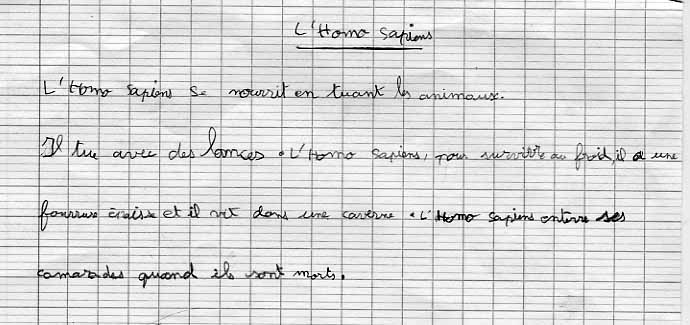 L'Homo sapiens
L'Homo sapiens se nourrit en tuant les animaux.
Il tue avec des lances. L'Homo sapiens, pour survivre au froid, il a une
fourrure épaisse et il vit dans une caverne. L'Homo sapiens enterre ses
camarades quand ils sont morts.